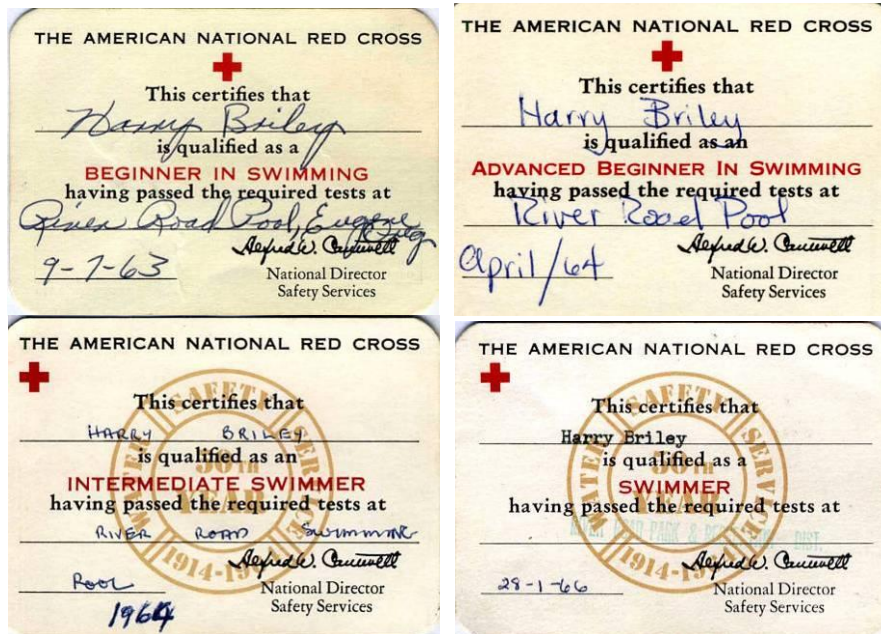 THE AMERICAN NATIONAL RED CROSS
This certifies that
Harry Briley
is qualified as a
BEGINNER IN SWIMMING
having passed the required tests at
River Road Pool, Eugene
Oreg
Alfred W. Cantwell
9-7-63
National Director
Safety Services
THE AMERICAN NATIONAL RED CROSS
This certifies that
Harry Briley
is qualified as an
ADVANCED BEGINNER IN SWIMMING
having passed the required tests at
River Road Pool
Alfred W. Cantwell
April/64
National Director
Safety Services
THE AMERICAN NATIONAL RED CROSS
WATER SAFETY SERVICE
50TH
YEAR
This certifies that
HARRY BRILEY
is qualified as an
INTERMEDIATE SWIMMER
having passed the required tests at
RIVER ROAD SWIMMING
Alfred W. Cantwell
Pool
National Director
1964
Safety Services
THE AMERICAN NATIONAL RED CROSS
WATER SAFETY SERVICE
50TH
YEAR
This certifies that
Harry Briley
is qualified as a
SWIMMER
having passed the required tests at
RIVER ROAD PARK & DIST.
Alfred W. Cantwell
28-1-66
National Director
Safety Services